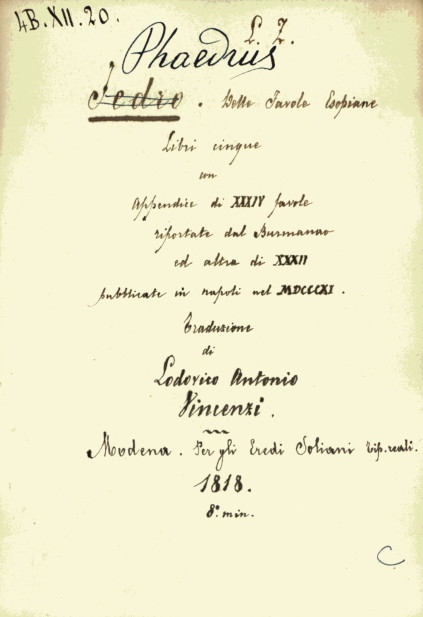 4B.XII.20.
L. Z.
Phaedrus
Fedro. Delle Favole Esopiane
Libri cinque
con
Appendice di XXXIV favole
riportate dal Burmanno
ed altra di XXXII
pubblicate in napoli nel MDCCCXI.
Traduzione
di
Lodovico Antonio
Vincenzi.
Modena. Per gli Eredi Soliani Tip. reali.
1818.
8.° min.
C